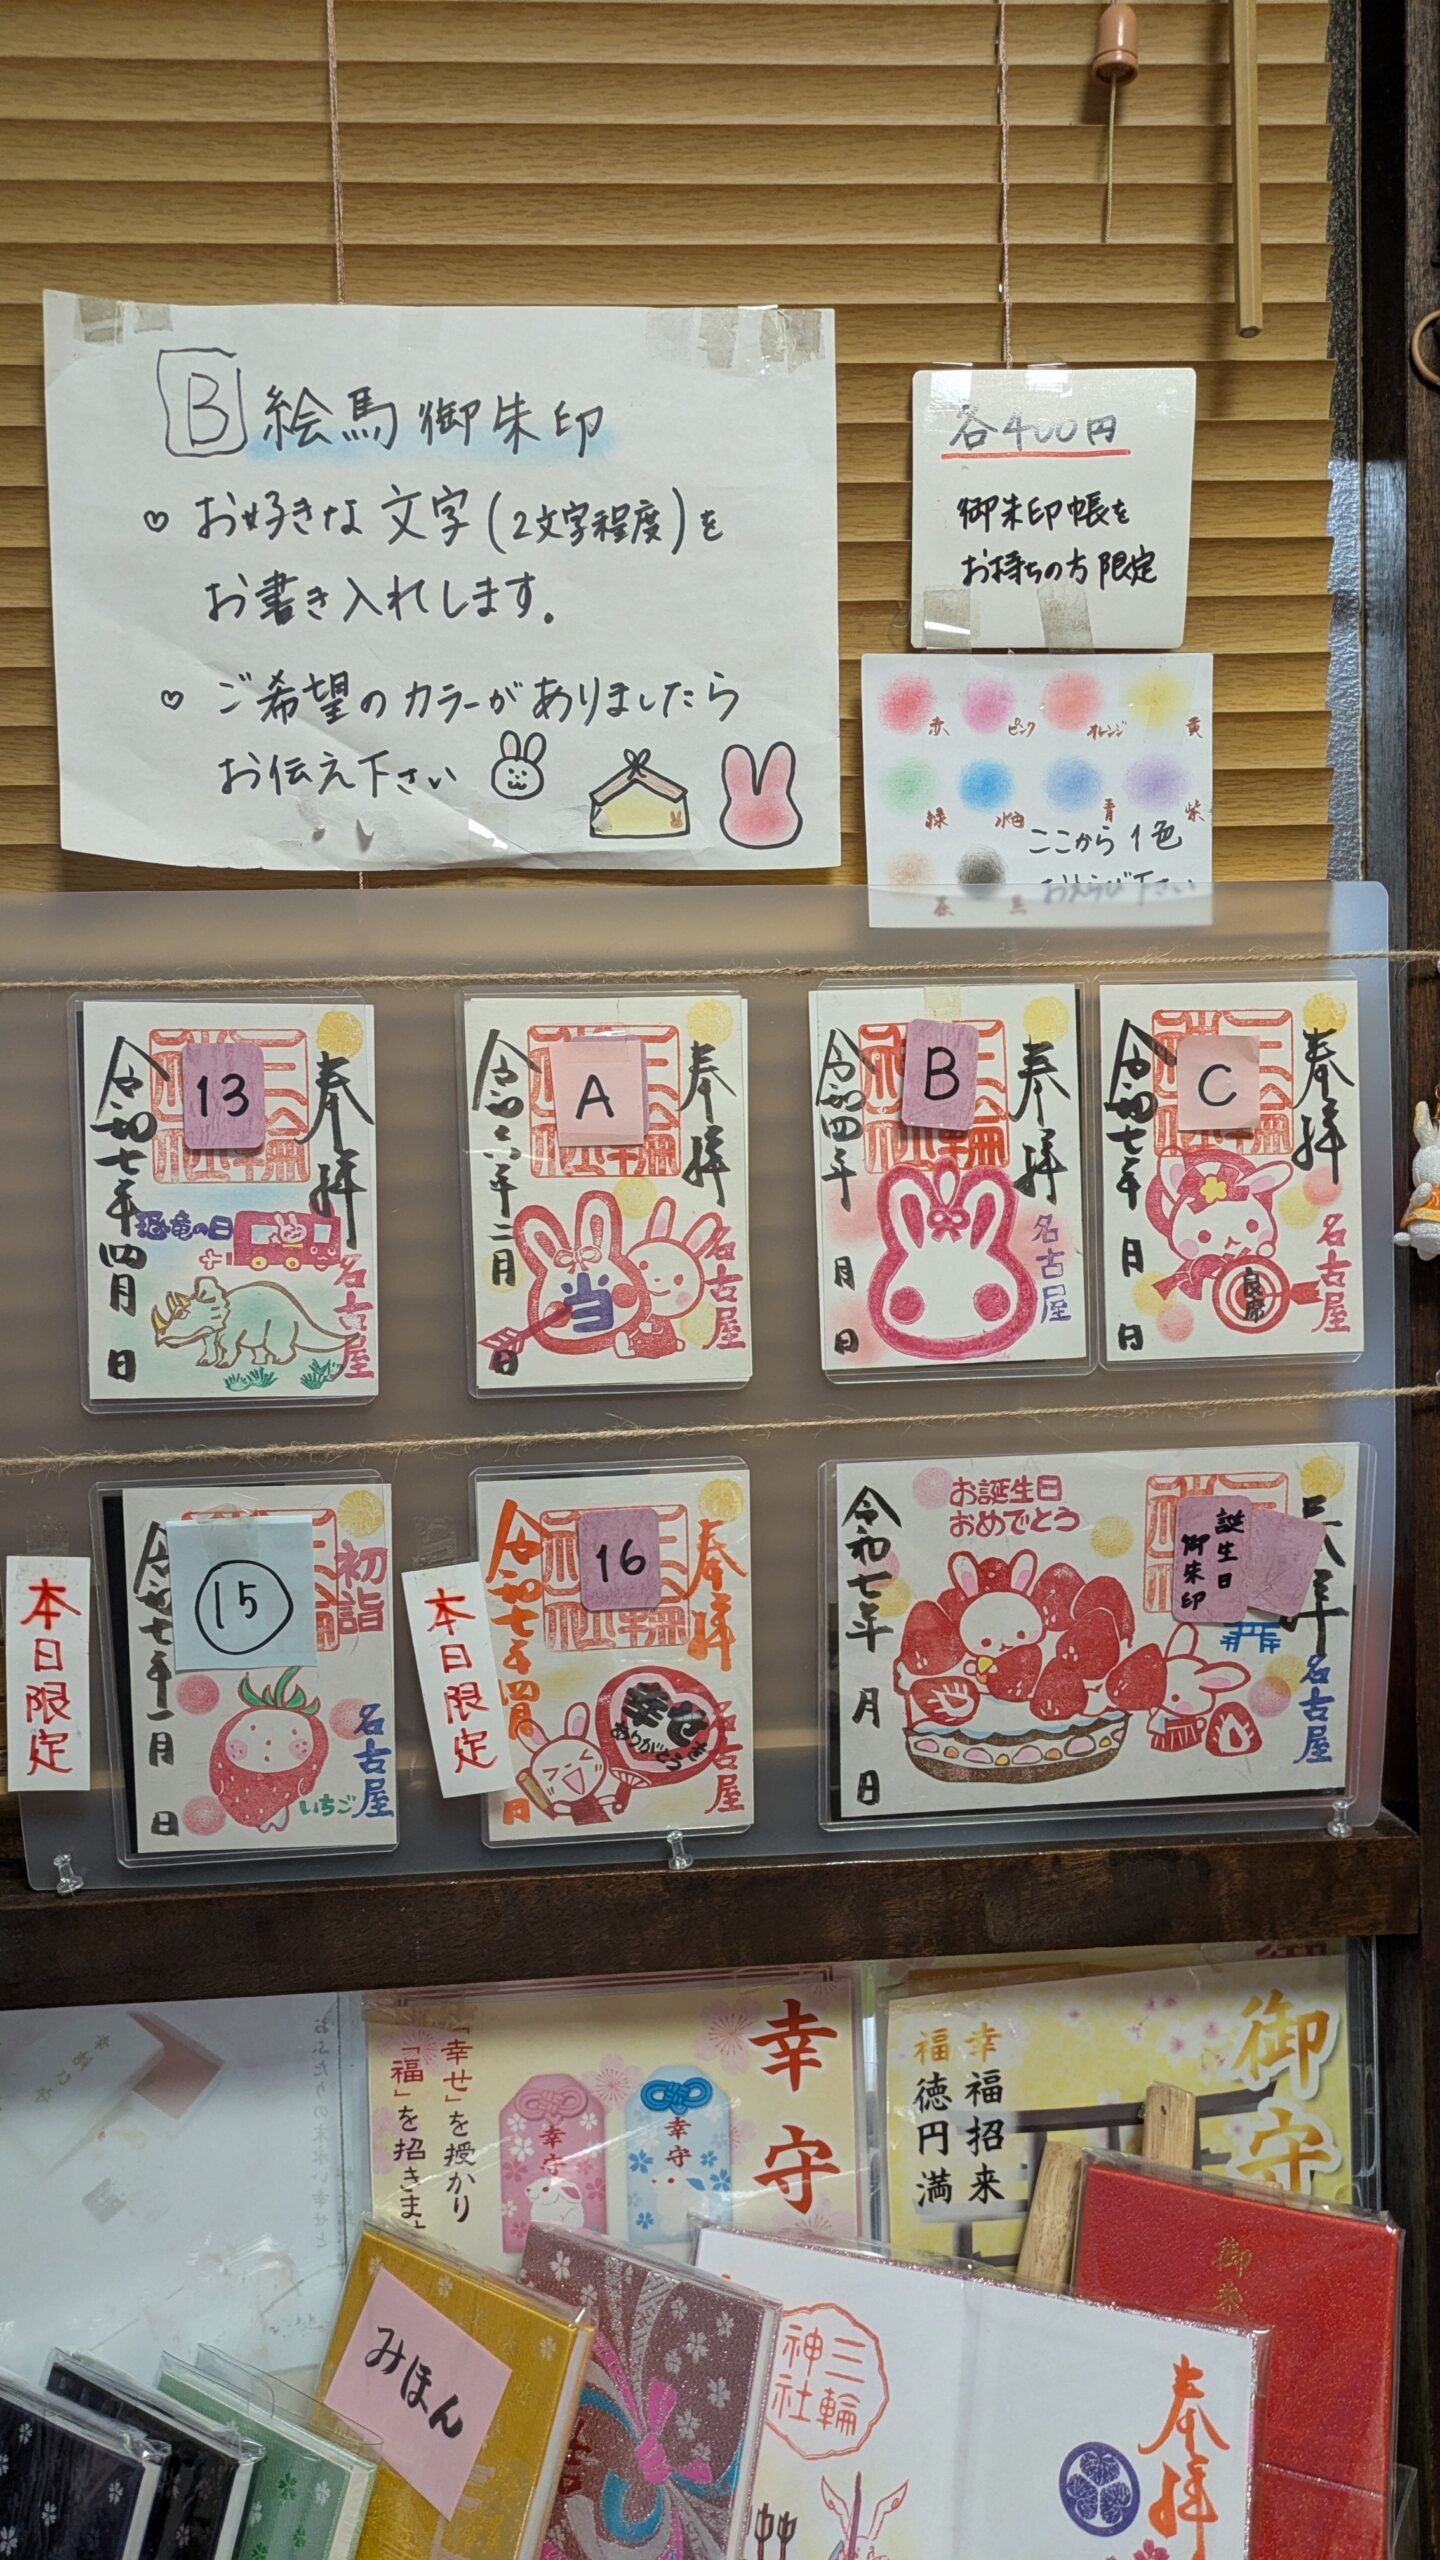 B 絵馬御朱印
♡ お好きな文字(2文字程度)を
お書き入れします。
♡ ご希望のカラーがありましたら
お伝え下さい
各400円
御朱印帳を
お持ちの方限定
赤 ピンク オレンジ 黄
緑 水色 青 紫
ここから1色
おえらび下さい
茶 黒
13
奉拝
令和七年四月 日
恐竜の日
名古屋
A
奉拝
令和六年二月 日
当
名古屋
B
奉拝
令和四年 月 日
名古屋
C
奉拝
令和七年 月 日
良席
名古屋
本日限定
15
初詣
令和七年一月 日
いちご
名古屋
本日限定
16
奉拝
令和七年四月 日
幸せを
ありがとう
名古屋
お誕生日
おめでとう
誕生日
御朱印
令和七年 月 日
名古屋
幸守
「幸せ」を授かり
「福」を招きま
幸守
幸守
御守
幸福招来
福徳円満
みほん
三輪
神社
奉拝
御朱